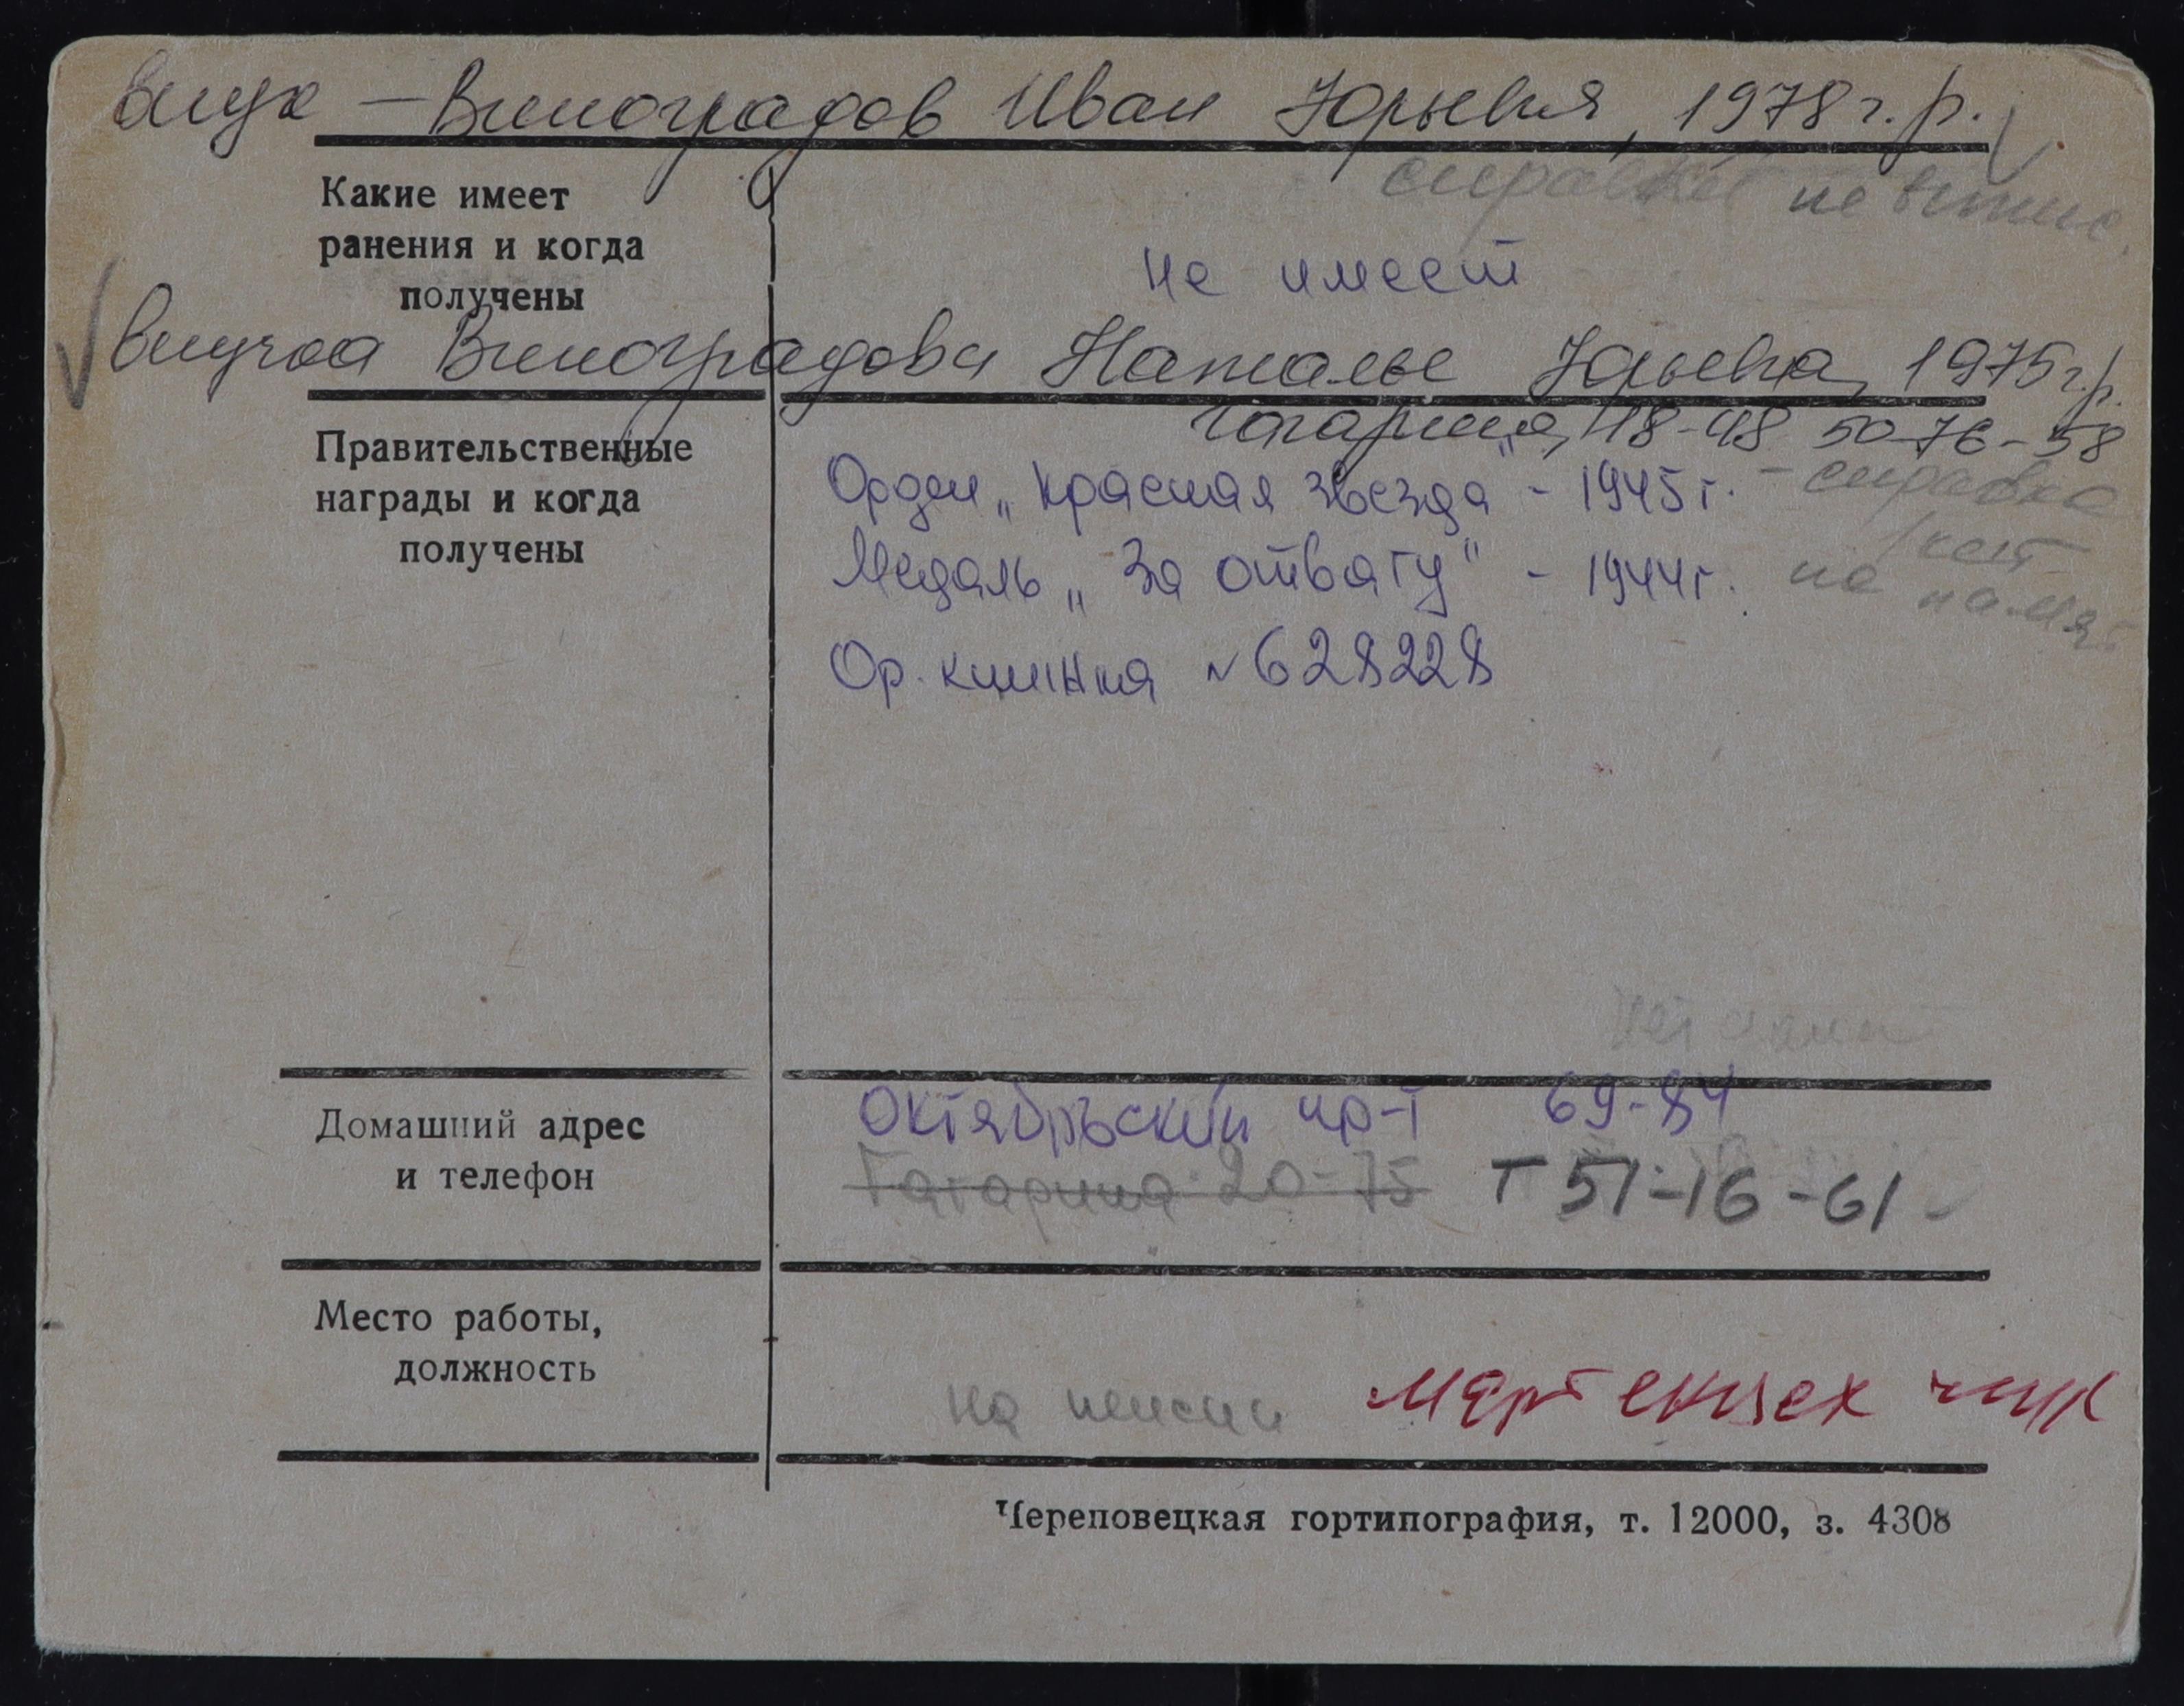 внук — Виноградов Иван Юрьевич, 1978 г. р.
справка не выпис.
Какие имеет
ранения и когда
получены
не имеет
внучка Виноградова Наталье Юрьевна, 1975 г.р.
Гагарина, 48-98 50-76-58
Правительственные
награды и когда
получены
Орден „Красная звезда" - 1945 г. - справка
Медаль „За отвагу" - 1944 г. на
Ор. книжка № 628228
Домашний адрес
и телефон
Октябрьский пр-т 69-84
Гагарина 20-75 Т 51-16-61
Место работы,
должность
на пенсии мартенцех
Череповецкая гортипография, т. 12000, з. 4308